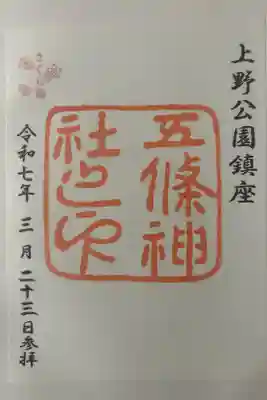 上野公園鎮座
五條神
社之印
令和七年 三月二十三日参拝